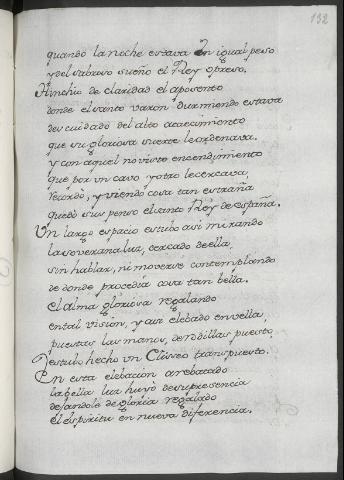 132
quando la noche estava en igual peso
y del sabroso sueño el Rey opreso.
Hinchio de claridad el aposento
donde el santo varon durmiendo estava
descuidado del alto acaecimiento
que su gloriosa suerte le ordenava.
y con aquel no visto encendimiento
que por un cavo y otro le cercava,
recordò, y viendo cosa tan estraña
quedò suspenso el santo Rey de españa.
Un largo espacio estubo asi mirando
la soverana luz, cercado de ella,
sin hablar, ni moverse contemplando
de donde procedia cosa tan bella.
el alma gloriosa regalando
en tal vision, y asi elebado en vella,
puestas las manos, de rodillas puesto,
estubo hecho un Eliseo transpuesto.
En esta elebacion arrebatado
la bella luz huyò de su presencia
dejandole de gloria regalado
el espiritu en nueva diferencia.